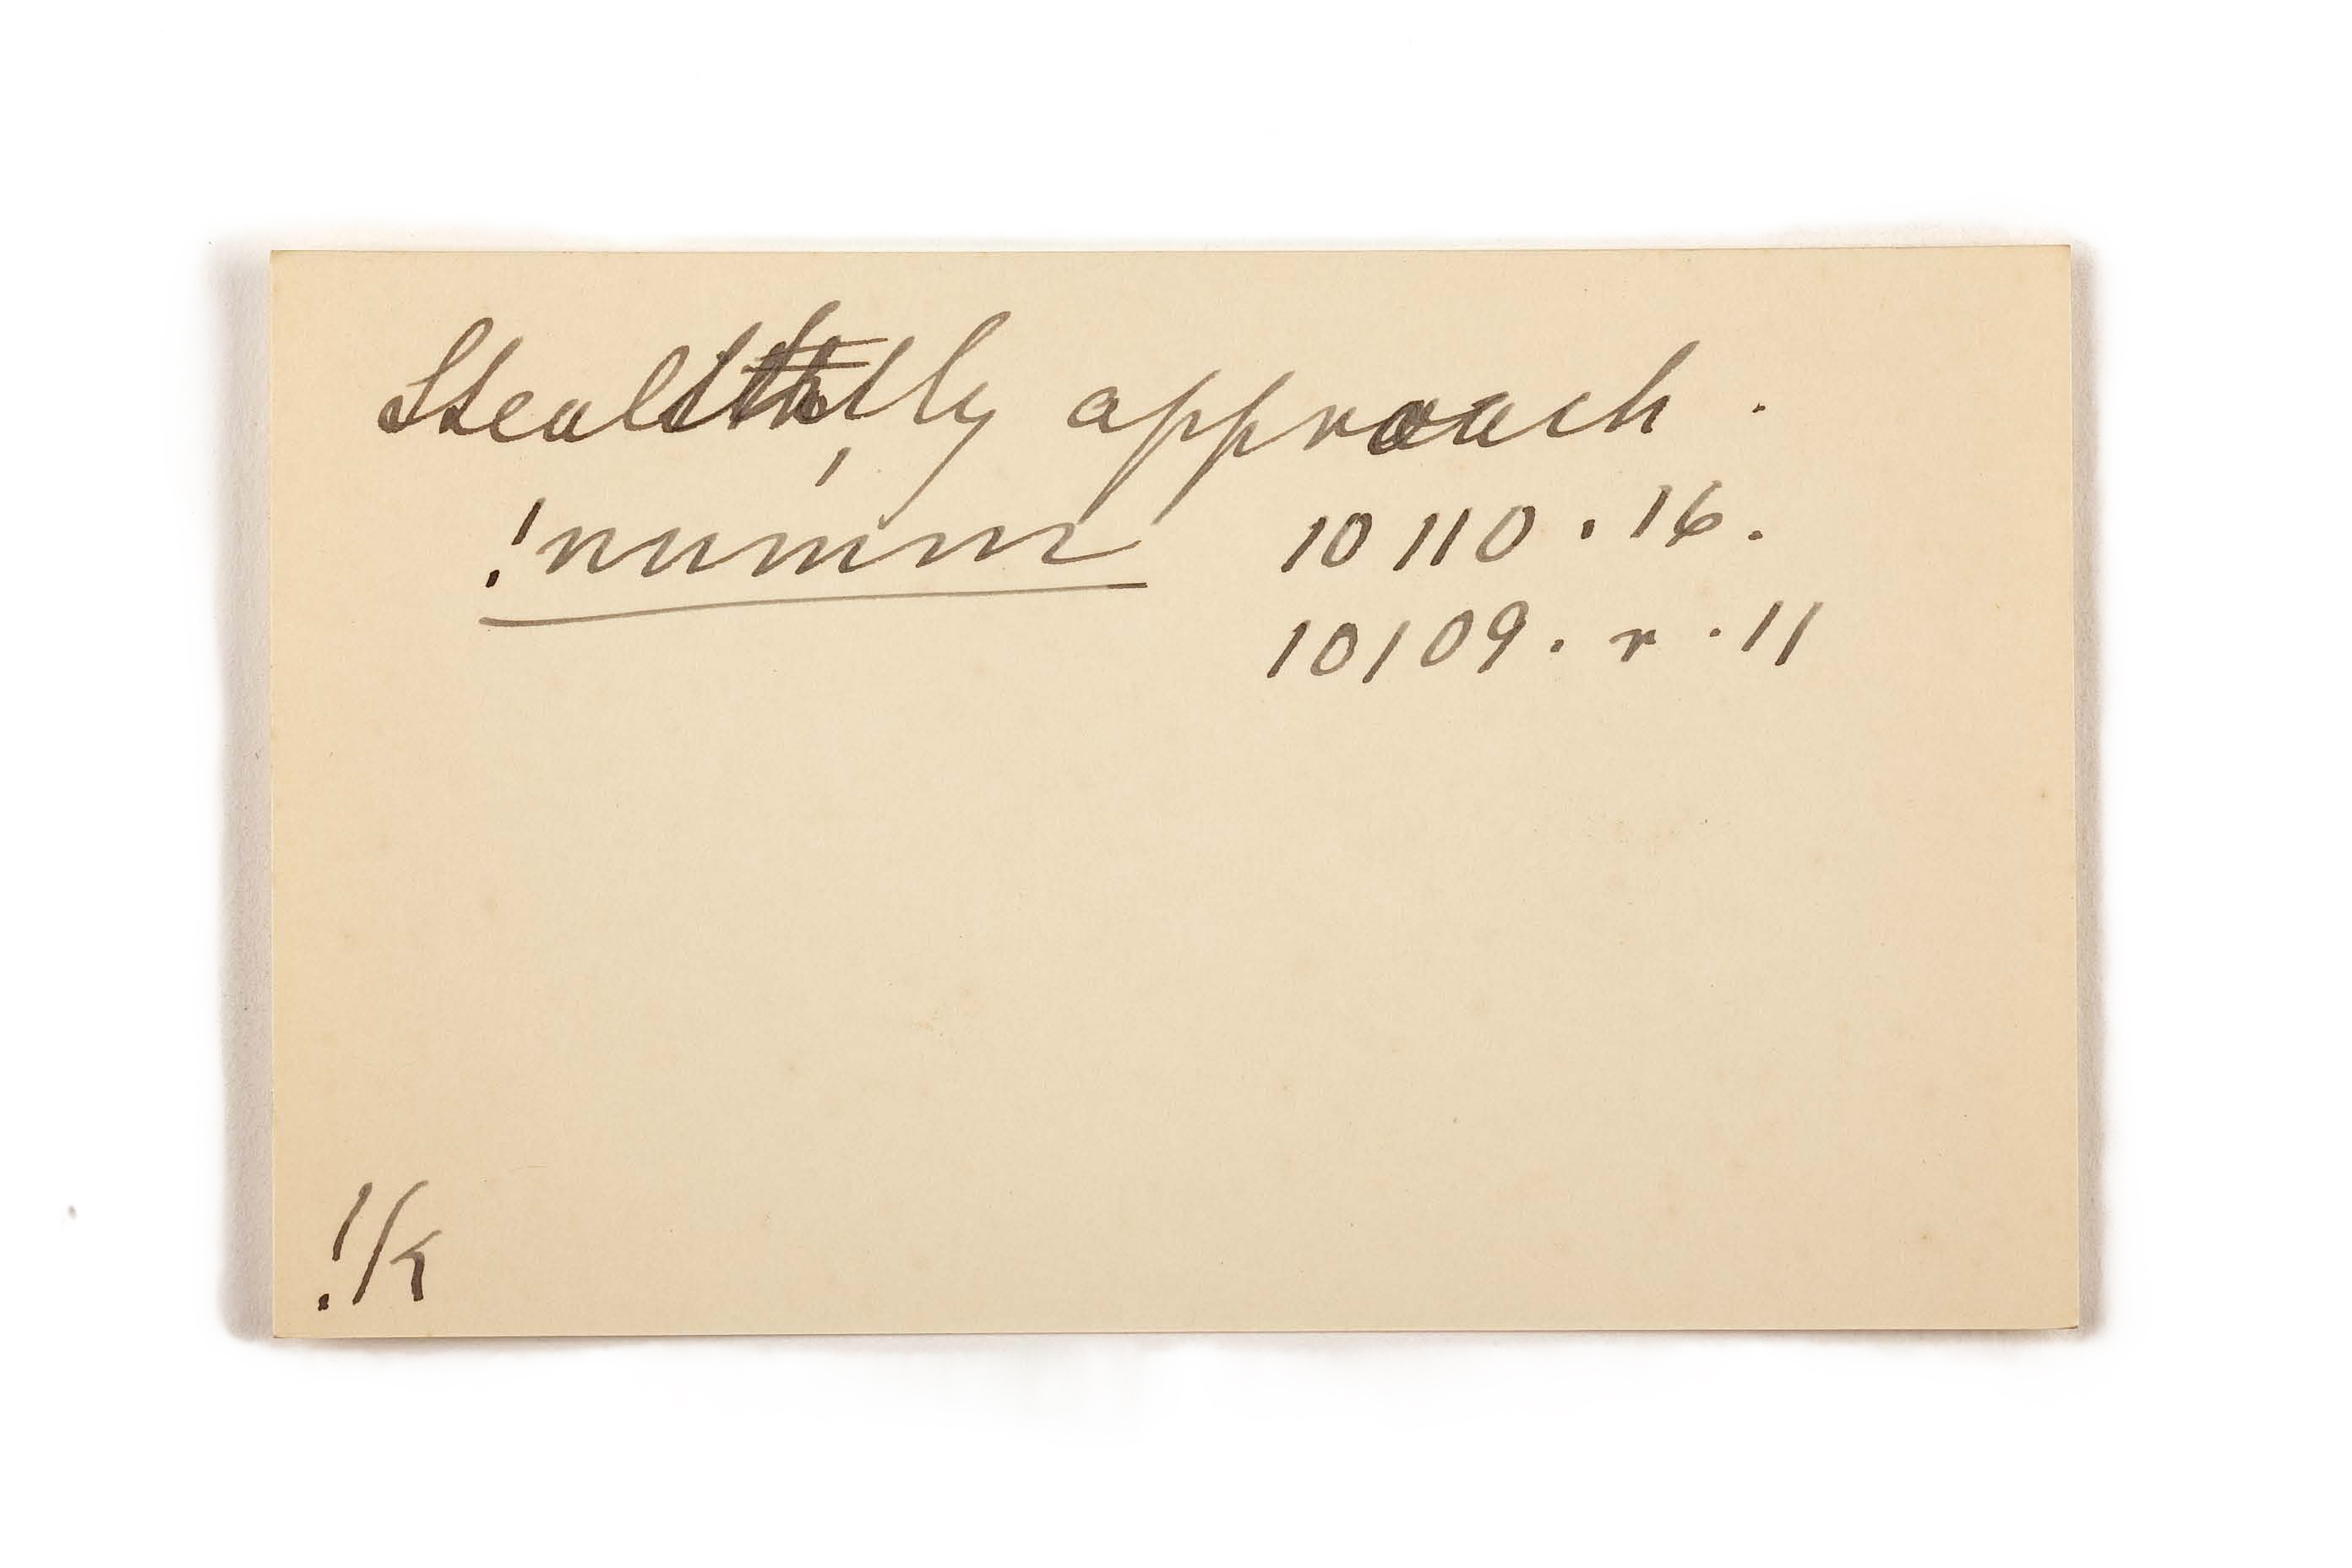 Stealthily approach.
!numm 10110.16.
10109. r. 11
!k